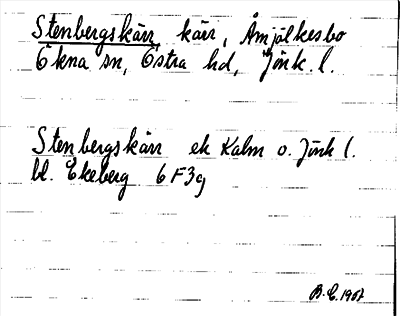 Stenbergskärr, kärr, Åmjölkesbo
Ökna sn, Östra hd, Jönk. l.
Stenbergskärr ek Kalm o. Jönk l.
bl. Ekeberg 6 F 3 g